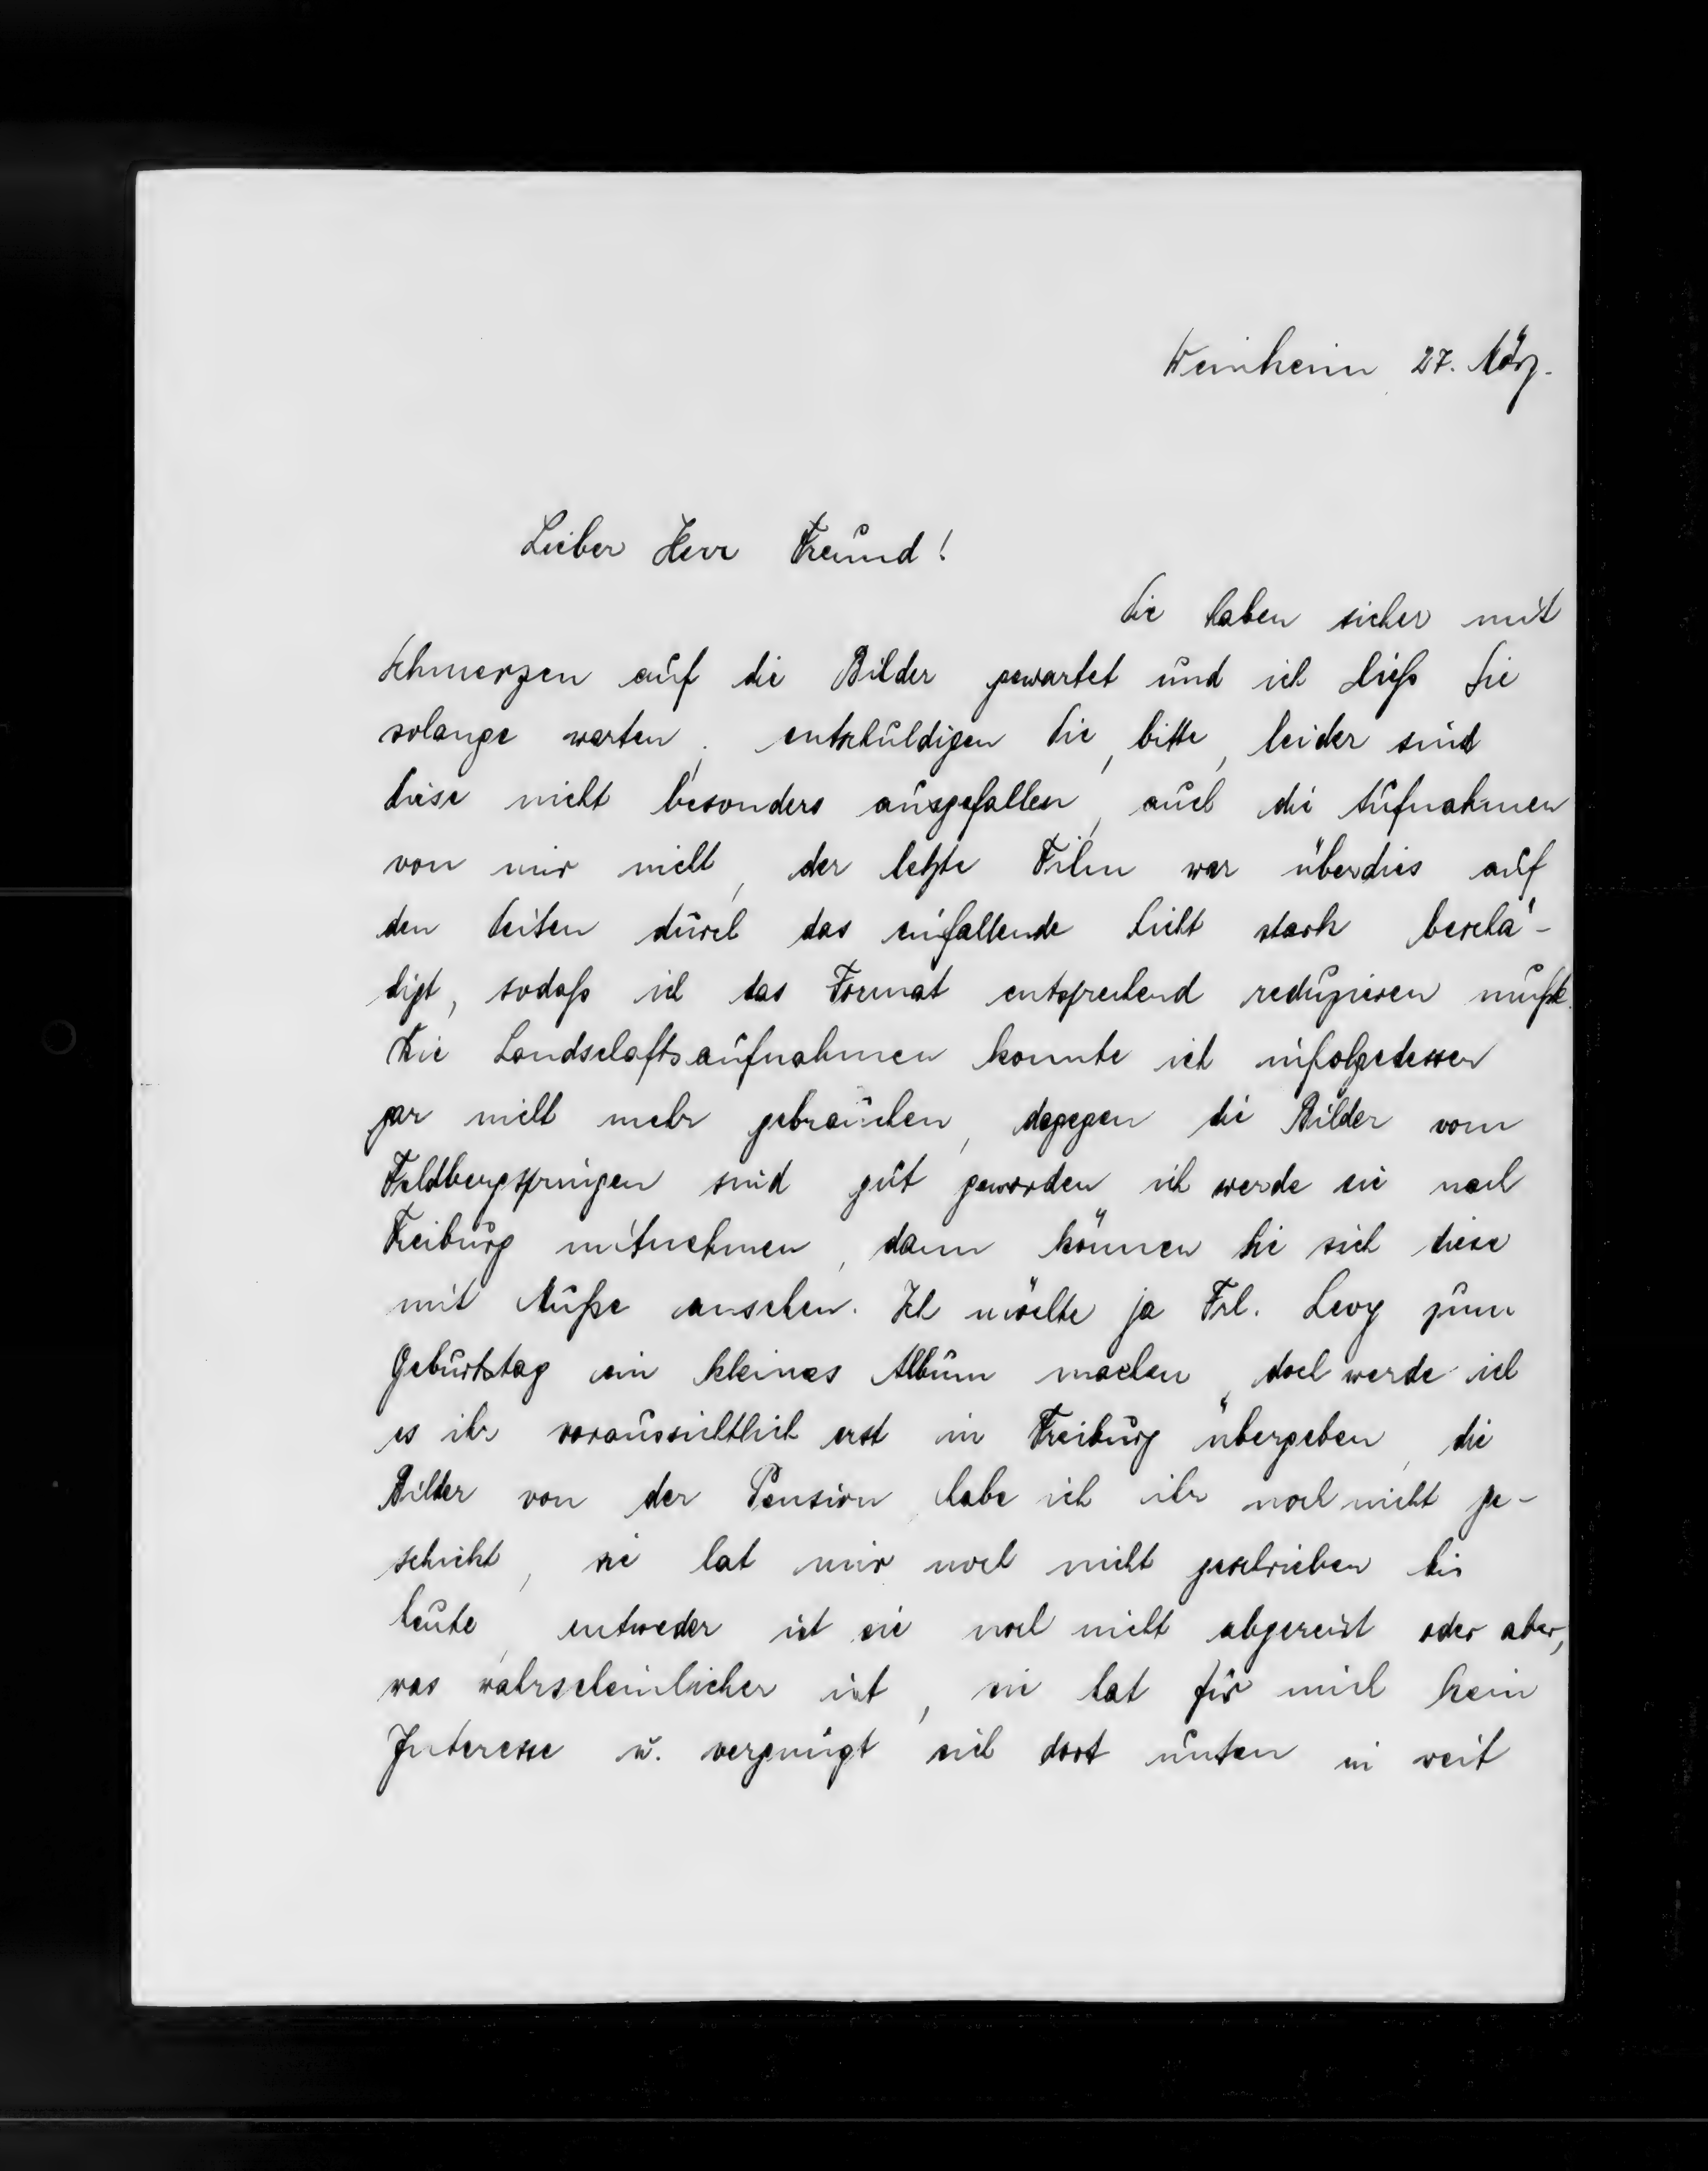 Weinheim 27. März.
Lieber Herr Freund!
Sie haben sicher mit
Schmerzen auf die Bilder gewartet und ich ließ Sie
solange warten, entschuldigen Sie, bitte, leider sind
diese nicht besonders ausgefallen, auch die Aufnahmen
von mir nicht, der letzte Film war überdies auf
den Seiten durch das einfallende Licht stark beschä-
digt, sodaß ich das Format entsprechend reduzieren mußte.
Die Landschaftsaufnahmen konnte ich infolgedessen
gar nicht mehr gebrauchen, dagegen die Bilder vom
Feldbergspringen sind gut geworden ich werde sie nach
Freiburg mitnehmen, dann können Sie sich diese
mit Muße ansehen. Ich möchte ja Frl. Levy zum
Geburtstag ein kleines Album machen, doch werde ich
es ihr voraussichtlich erst in Freiburg übergeben, die
Bilder von der Pension habe ich ihr noch nicht ge-
schickt, sie hat mir noch nicht geschrieben bis
heute, entweder ist sie noch nicht abgereist oder aber,
was wahrscheinlicher ist, sie hat für mich kein
Interesse u. vergnügt sich dort unten in weit